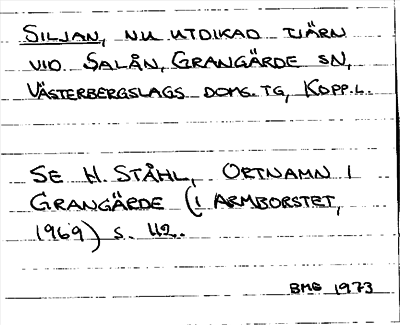 SILJAN, NU UTDIKAD TJÄRN
VID SALÅN, GRANGÄRDE SN,
VÄSTERBERGSLAGS DOMS. TG, KOPP.L.
SE H. STÅHL, ORTNAMN I
GRANGÄRDE (I ARMBORSTET,
1969) S. 42.
BMG 1973